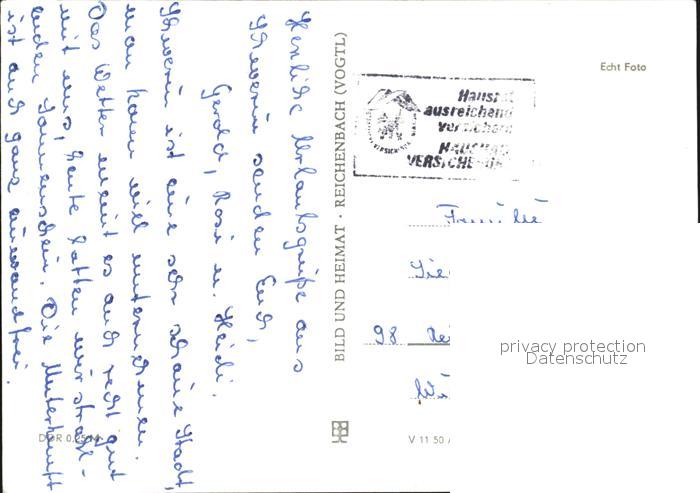 Herzliche Urlaubsgrüße aus
Schwerin senden Euch,
Gerald, Rosi u. Heidi.
Schwerin ist eine sehr schöne Stadt,
man kann viel unternehmen.
Das Wetter meint es auch recht gut
mit uns, heute hatten wir strahl-
enden Sonnenschein. Die Unterkunft
ist auch ganz einwandfrei.
DDR 0,25 M
BILD UND HEIMAT · REICHENBACH (VOGTL)
Echt Foto
Hausrat
ausreichend
versichern
HAUSHALT
VERSICHERUNG
Familie
98
V 11 50
privacy protection
Datenschutz